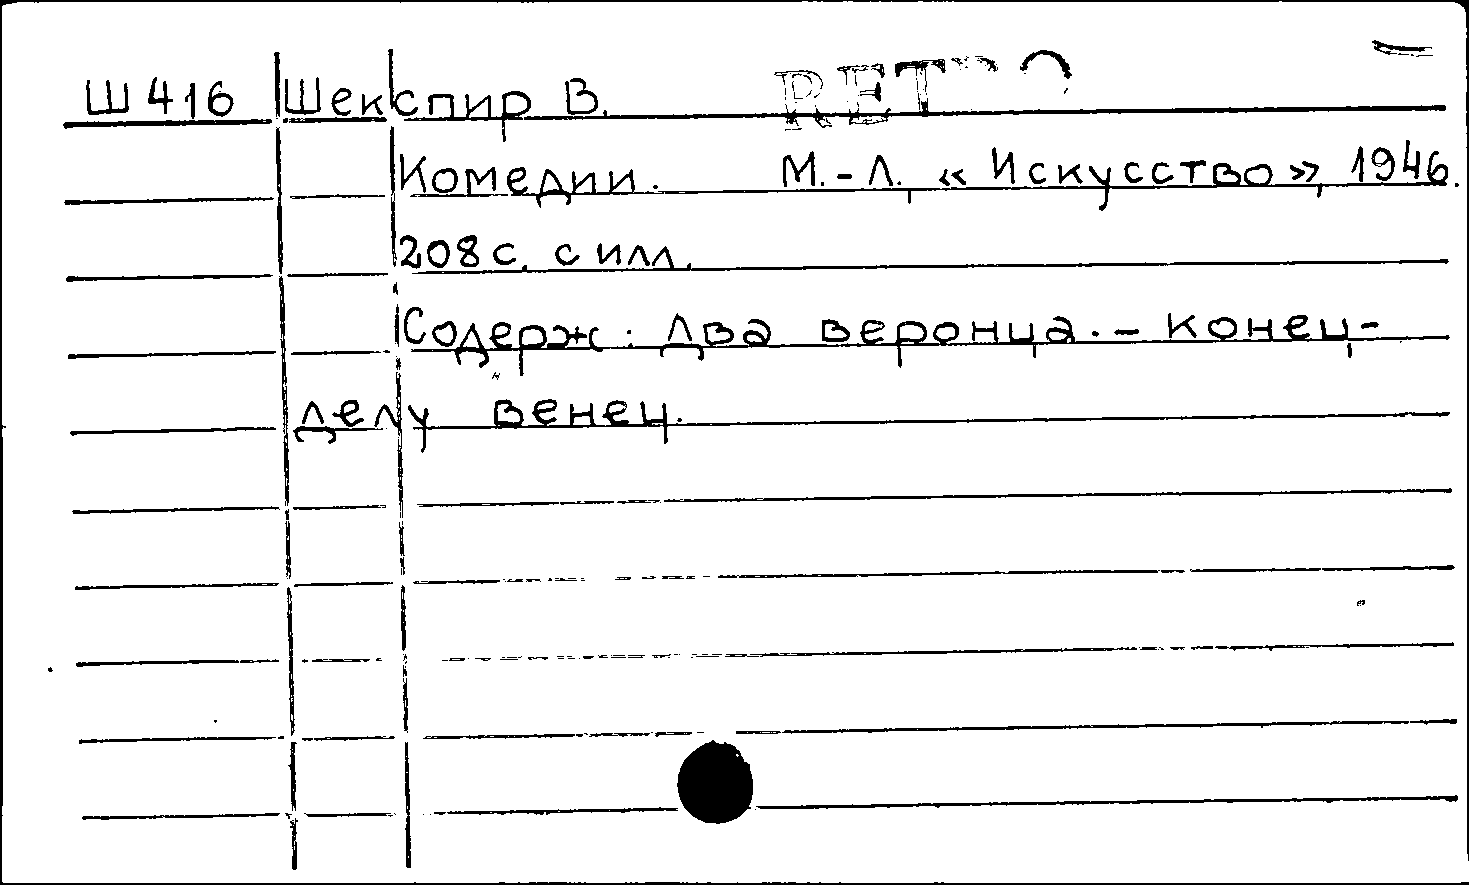 Ш416 Шекспир В.
Комедии. М.-Л., «Искусство», 1946.
208 с. с илл.
Содерж: Два веронца. - Конец-
делу венец.